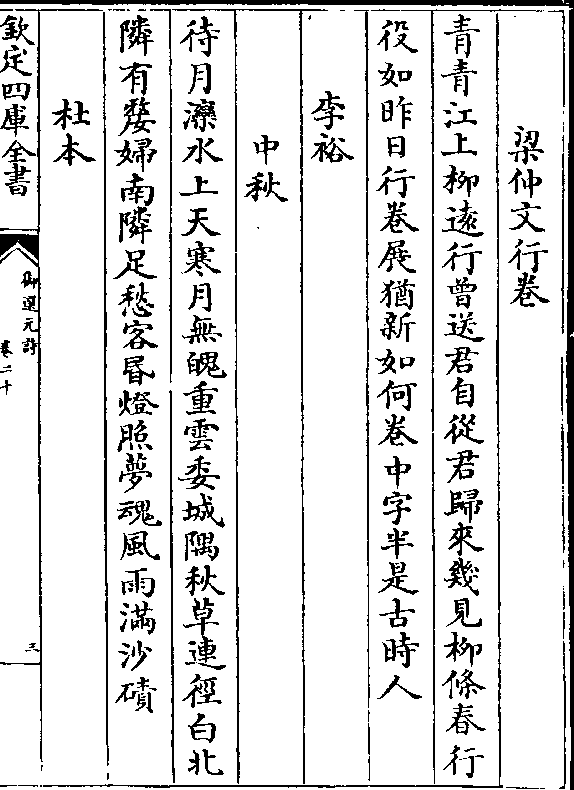 梁仲文行卷
青青江上柳遠行曾送君自從君歸來幾見柳條春行
役如昨日行卷展猶新如何卷中字半是古時人
李裕
中秋
待月濼水上天寒月無魄重雲委城隅秋草連徑白北
隣有嫠婦南隣足愁客昏燈照夢魂風雨滿沙磧
杜本
欽定四庫全書
御選元詩
卷二十
三